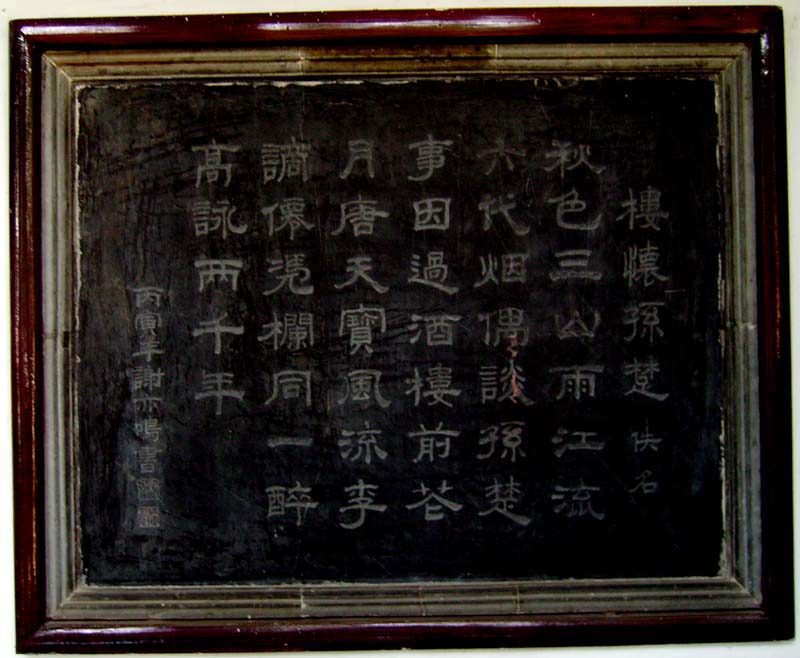 樓懷孫楚 佚名
秋色三山雨江流
六代烟偶談孫楚
事因過酒樓前花
月唐天寶風流李
謫僊凭欄同一醉
高詠兩千年
丙寅年謝亦鳴書